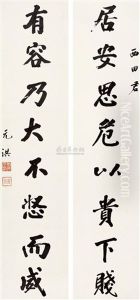 西田君
居安思危以貴下賤
有容乃大不怒而威
元洪